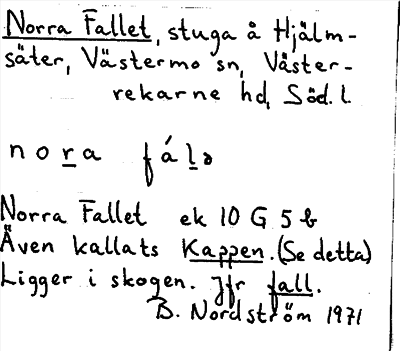 Norra Fallet, stuga å Hjälm-
säter, Västermo sn, Väster-
rekarne hd, Söd. l.
nora fálə
Norra Fallet ek 10 G 5 b
Även kallats Kappen. (Se detta)
Ligger i skogen. Jfr fall.
B. Nordström 1971